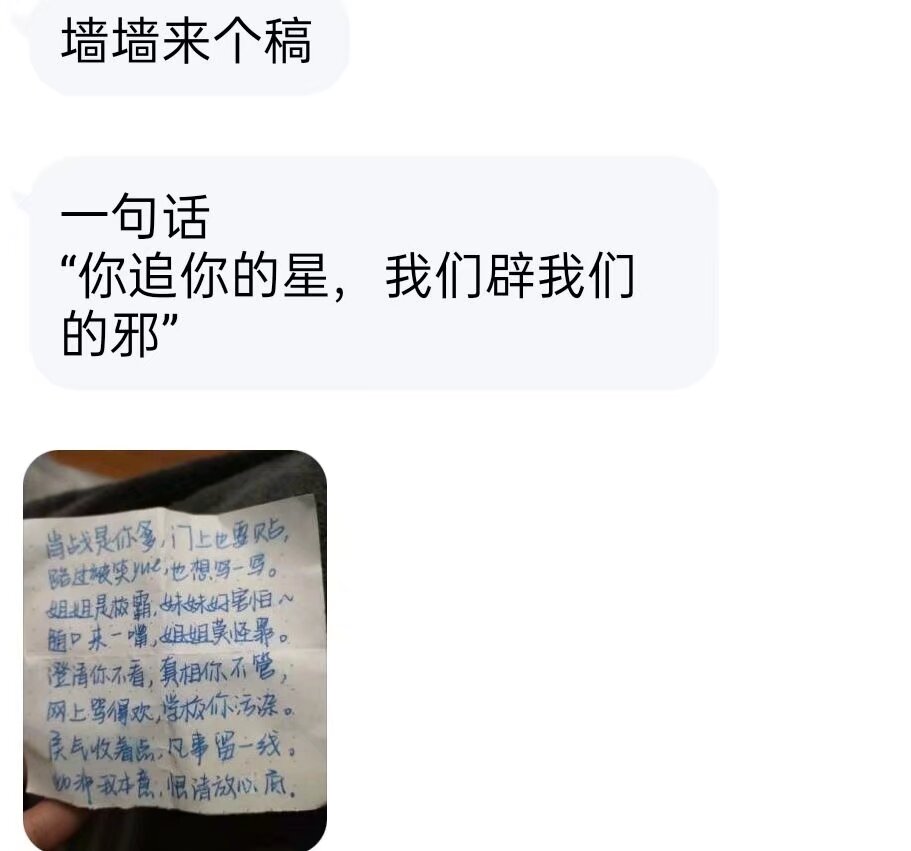 墙墙来个稿
一句话
“你追你的星，我们辟我们
的邪”
肖战是你爹，门上也要贴，
路过被笑yue，也想写一写。
姐姐是校霸，妹妹好害怕～
随口来一嘴，姐姐莫怪罪。
澄清你不看，真相你不管，
网上骂得欢，学校你污染。
戾气收着点，凡事留一线。
劝那我本意，恨请放心底。